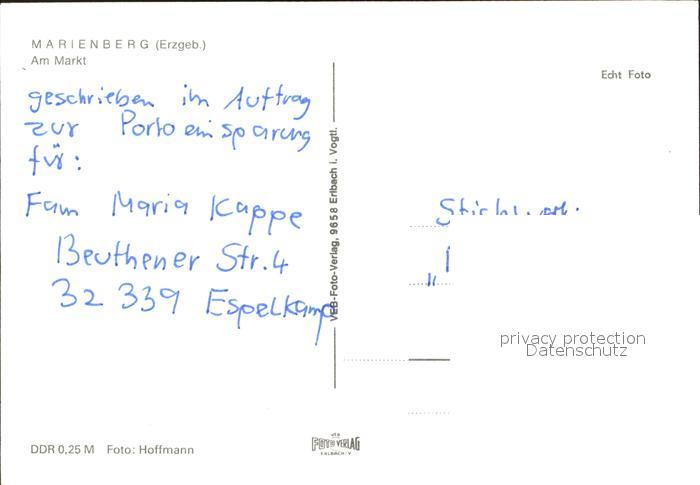 MARIENBERG (Erzgeb.)
Am Markt
Echt Foto
geschrieben im Auftrag
zur Portoeinsparung
für:
Fam Maria Kappe
Beuthener Str. 4
32 339 Espelkamp
VEB-Foto-Verlag, 9658 Erlbach i. Vogtl.
privacy protection
Datenschutz
DDR 0,25 M Foto: Hoffmann
VEB
FOTO VERLAG
ERLBACH/V